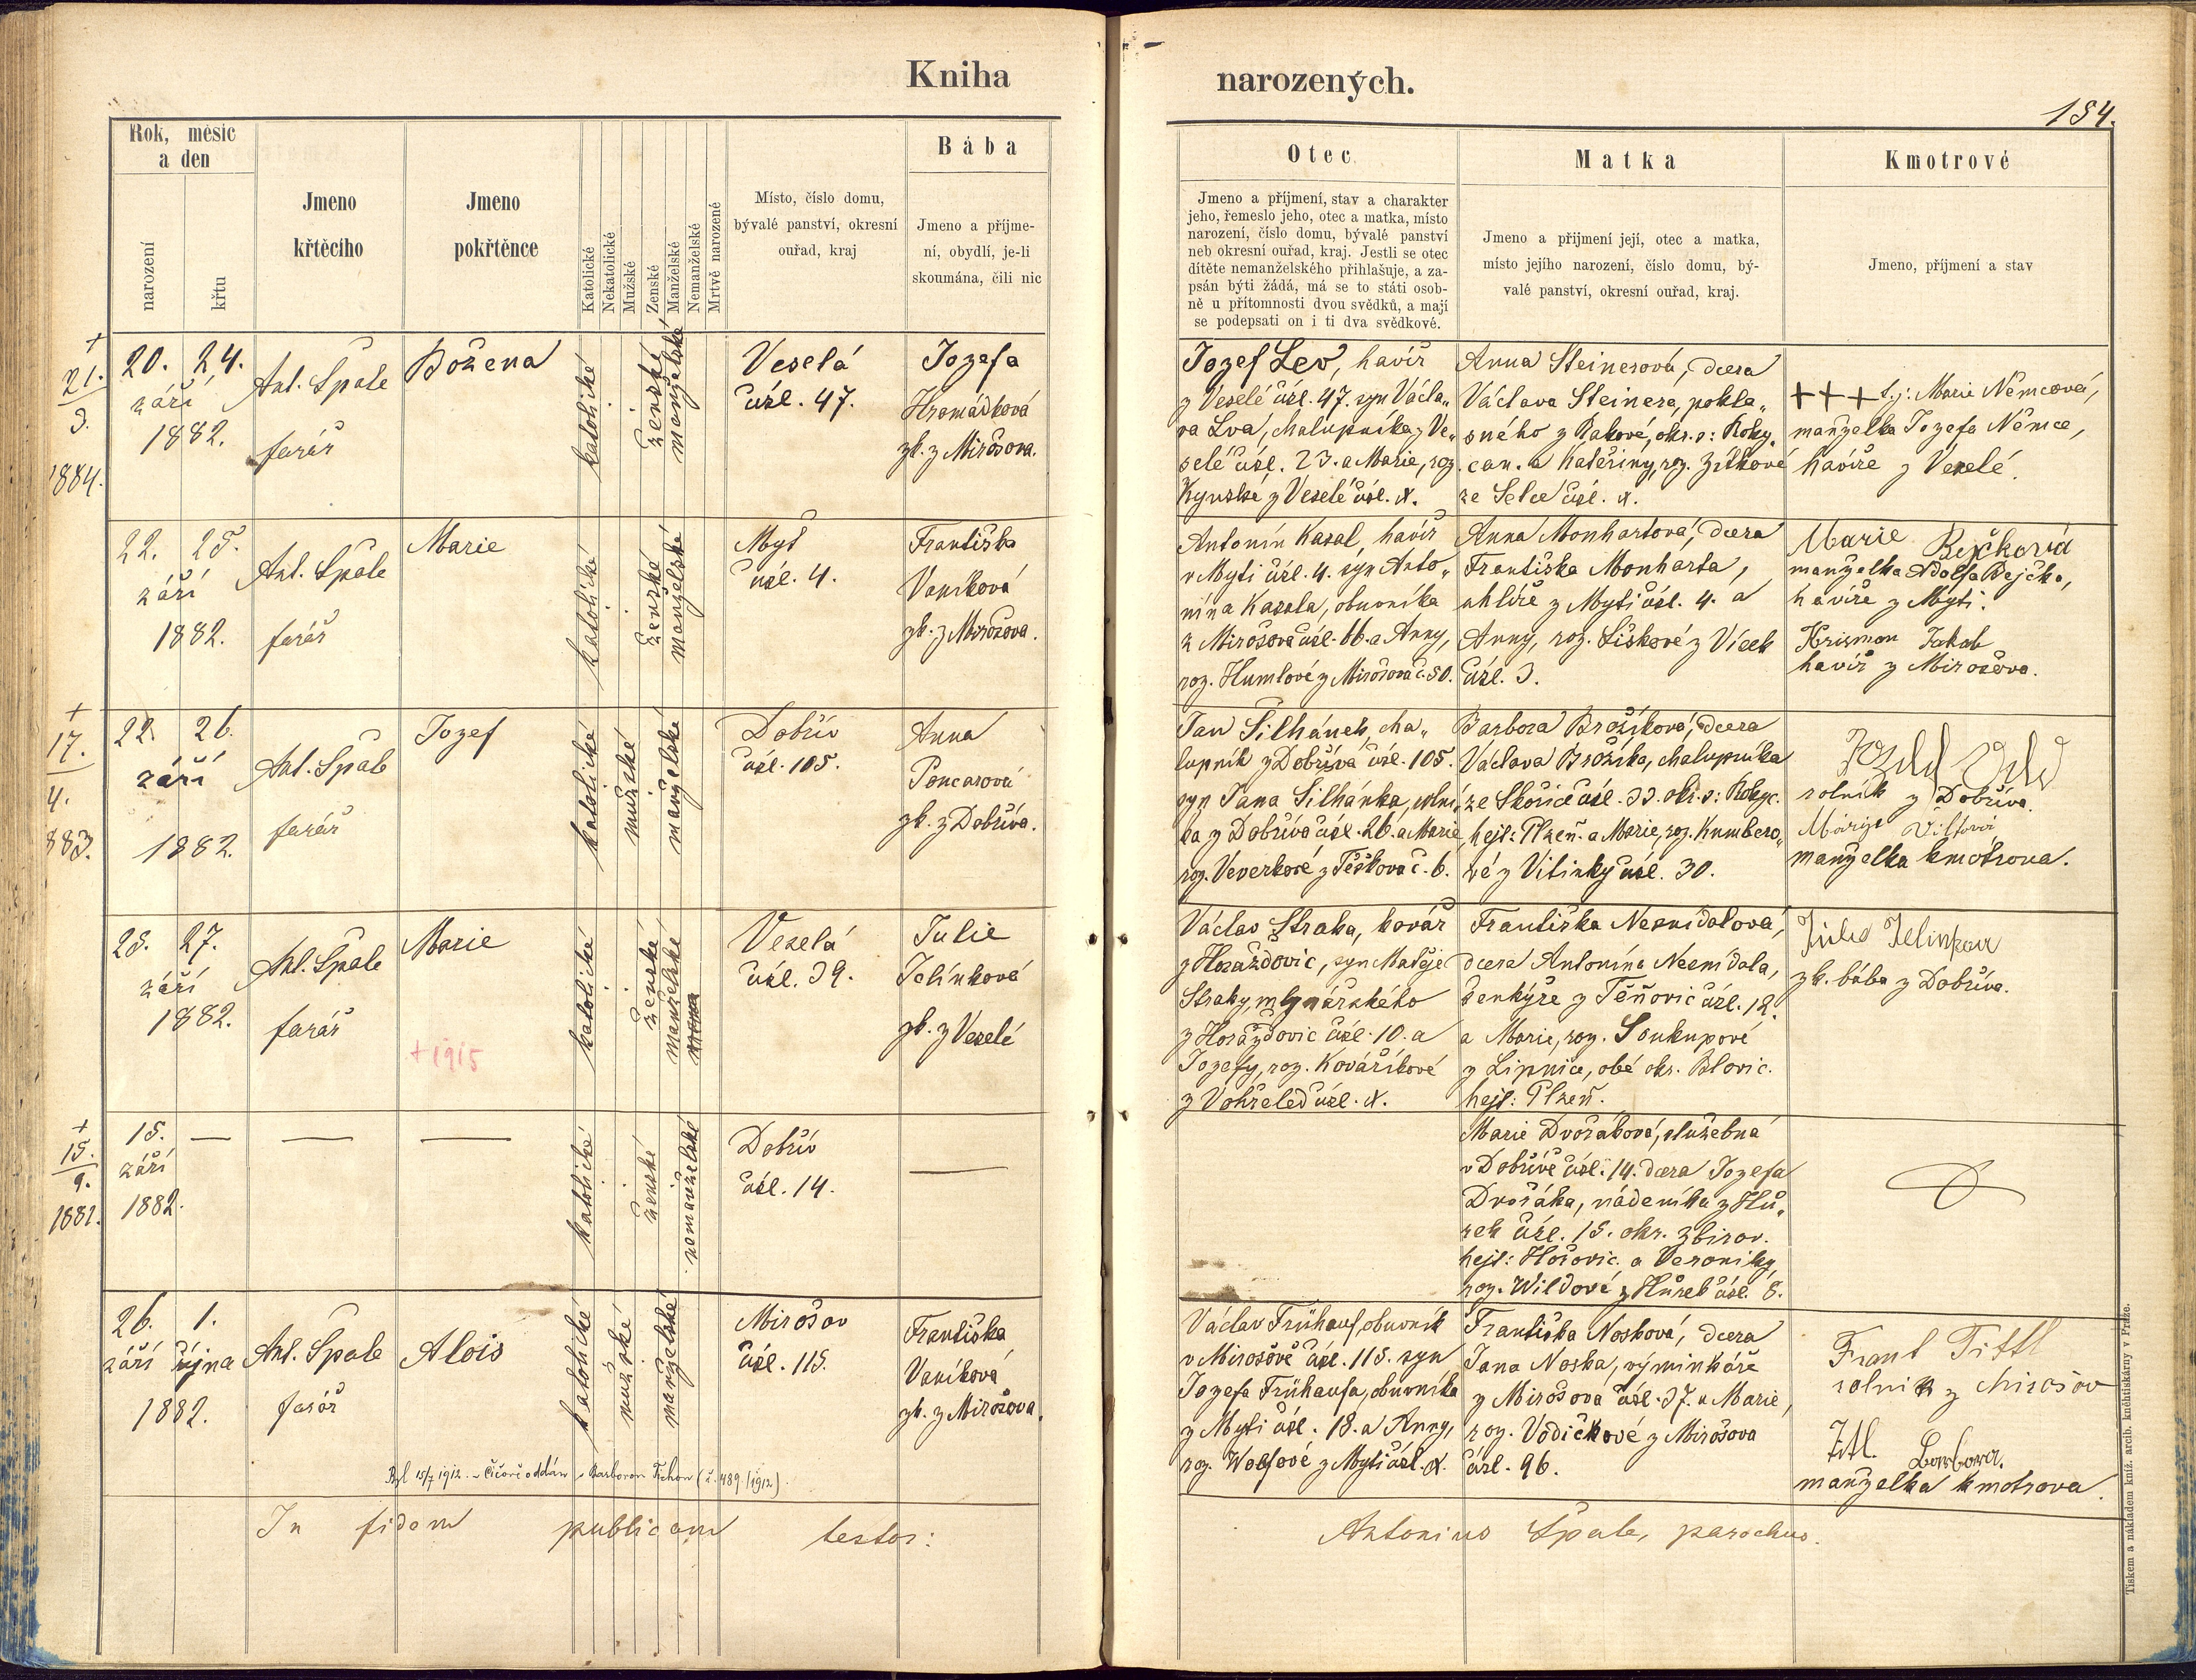 Kniha narozených.
184.
Rok, měsíc a den
narození
křtu
Jmeno křtěcího
Jmeno pokřtěnce
Katolické
Nekatolické
Mužské
Ženské
Manželské
Nemanželské
Mrtvě narozené
Místo, číslo domu,
bývalé panství, okresní
ouřad, kraj
Bába
Jmeno a příjme-
ní, obydlí, je-li
skoumána, čili nic
Otec
Jmeno a příjmení, stav a charakter
jeho, řemeslo jeho, otec a matka, místo
narození, číslo domu, bývalé panství
neb okresní ouřad, kraj. Jestli se otec
dítěte nemanželského přihlašuje, a za-
psán býti žádá, má se to státi osob-
ně u přítomnosti dvou svědků, a mají
se podepsati on i ti dva svědkové.
Matka
Jmeno a přijmení její, otec a matka,
místo jejího narození, číslo domu, bý-
valé panství, okresní ouřad, kraj.
Kmotrové
Jmeno, příjmení a stav
+
21.
3.
1884.
20. 24.
září
1882.
Ant. Špale
farář
Božena
katolické
ženské
manželské
Veselá
čísl. 47.
Jozefa
Hromádková
zk. z Mirošova.
Jozef Lev, havíř
z Veselé čísl. 47. syn Václa„
va Lva, chalupníka z Ve„
selé čísl. 23. a Marie, roz.
Kynzlské z Veselé čísl. X.
Anna Steinerová, dcera
Václava Steinera, pokla„
sného z Rakové, okr. s: Roky„
can. a Kateřiny, roz. Zítkové
ze Selce čísl. X.
+++ t.j: Marie Němcová,
manželka Jozefa Němce,
havíře z Veselé.
22. 25.
září
1882.
Ant. Špale
farář
Marie
katolické
ženské
manželské
Myť
čísl. 4.
Františka
Vaníková
zk. z Mirošova.
Antonín Kasal, havíř
v Myti čísl. 4. syn Anto„
nína Kasala, obuvníka
z Mirošova čísl. 66. a Anny,
roz. Humlové z Mirošova č. 50.
Anna Monhartová, dcera
Františka Monharta,
uhlíře z Myti čísl. 4. a
Anny, roz. Šiškové z Vísek
čísl. 3.
Marie Bejčková
manželka Adolfa Bejčka,
havíře z Myti.
Krizman Jakub
havíř z Mirošova.
+
17.
4.
883.
22. 26.
září
1882.
Ant. Špale
farář
Jozef
katolické
mužské
manželské
Dobřív
čísl. 105.
Anna
Poncarová
zk. z Dobříva.
Jan Šilhánek, cha„
lupník z Dobříva čísl. 105.
syn Jana Šilhánka, rolní„
ka z Dobříva čísl. 26. a Marie
roz. Veverkové z Těškova č. 6.
Barbora Brožíková, dcera
Václava Brožíka, chalupníka
ze Skořice čísl. 33. okr. s: Rokyc.
hejt: Plzeň. a Marie, roz. Kumbero„
vé z Vitinky čísl. 30.
rolník z Dobříva.
manželka kmotrova.
25. 27.
září
1882.
Ant. Špale
farář
Marie
+ 1915
katolické
ženské
manželské
Veselá
čísl. 39.
Julie
Jelínková
zk. z Veselé
Václav Straka, kovář
z Horažďovic, syn Matěje
Straky, mlynářského
z Horažďovic čísl. 10. a
Jozefy, roz. Kováříkové
z Vohřeled čísl. X.
Františka Nesnídalová,
dcera Antonína Nesnídala,
šenkýře z Těňovic čísl. 12.
a Marie, roz. Soukupové
z Lipnice, obé okr. Blovic.
hejt: Plzeň.
zk. bába z Dobříva.
+
15.
9.
1882.
15.
září
1882.
katolické
ženské
nemanželské
Dobřív
čísl. 14.
Marie Dvořáková, služebná
v Dobřívě čísl. 14. dcera Jozefa
Dvořáka, nádeníka z Hů„
rek čísl. 15. okr. Zbirov.
hejt: Hořovic. a Veroniky,
roz. Wildové z Hůrek čísl. 8.
26. 1.
září října
1882.
Ant. Špale
farář
Alois
katolické
mužské
manželské
Mirošov
čísl. 115.
Františka
Vaníková
zk. z Mirošova.
Václav Frühauf, obuvník
v Mirošově čísl. 115. syn
Jozefa Frühaufa, obuvníka
z Myti čísl. 18. a Anny,
roz. Wolfové z Myti čísl. X.
Františka Nosková, dcera
Jana Noska, výminkáře
z Mirošova čísl. 37. a Marie,
roz. Vodičkové z Mirošova
čísl. 96.
Frant Tittl
rolník z Mirošov
Titl Barbora.
manželka kmotrova.
Byl 15/7 1912 v Čičově oddán s Barborou Tichou (č. 489/1912).
In fidem publicam testor:
Antonius Špale, parochus.
Tiskem a nákladem kníž. arcib. knihtiskárny v Praze.